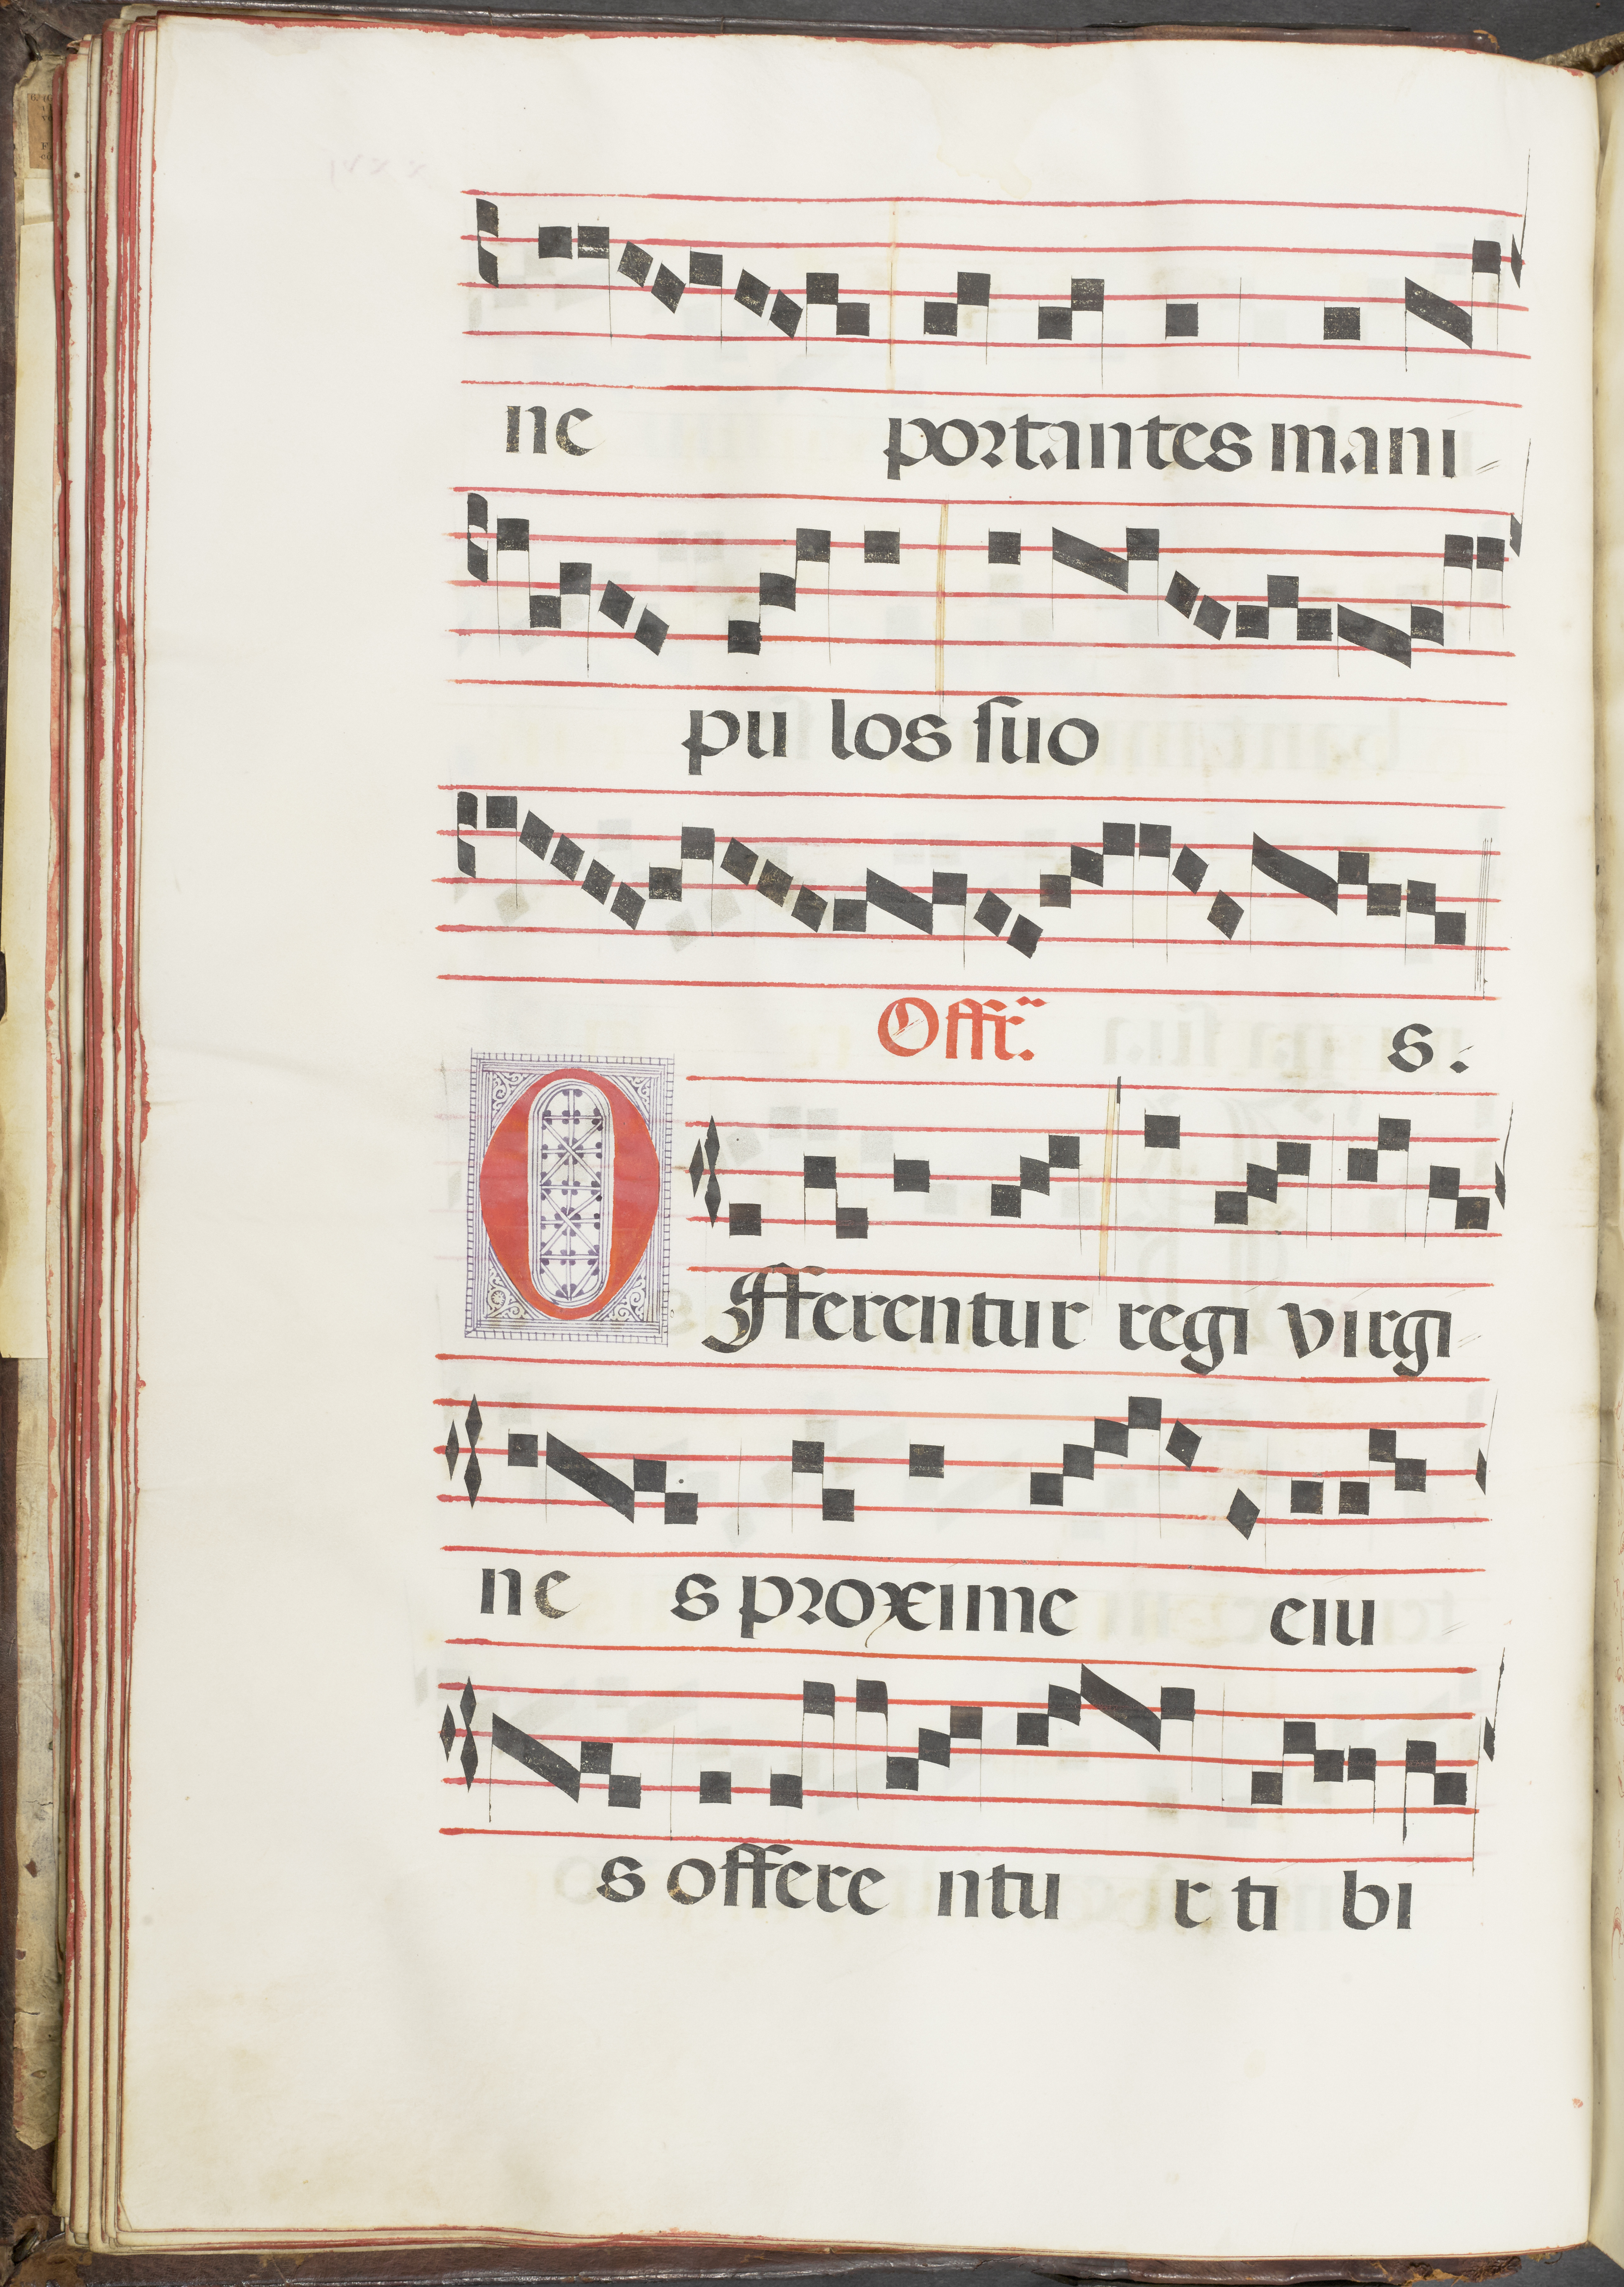 ne portantes mani
pu los ſuo
Offr. s.
Offerentur regi virgi
ne s proxime eiu
s offere ntu r ti bi